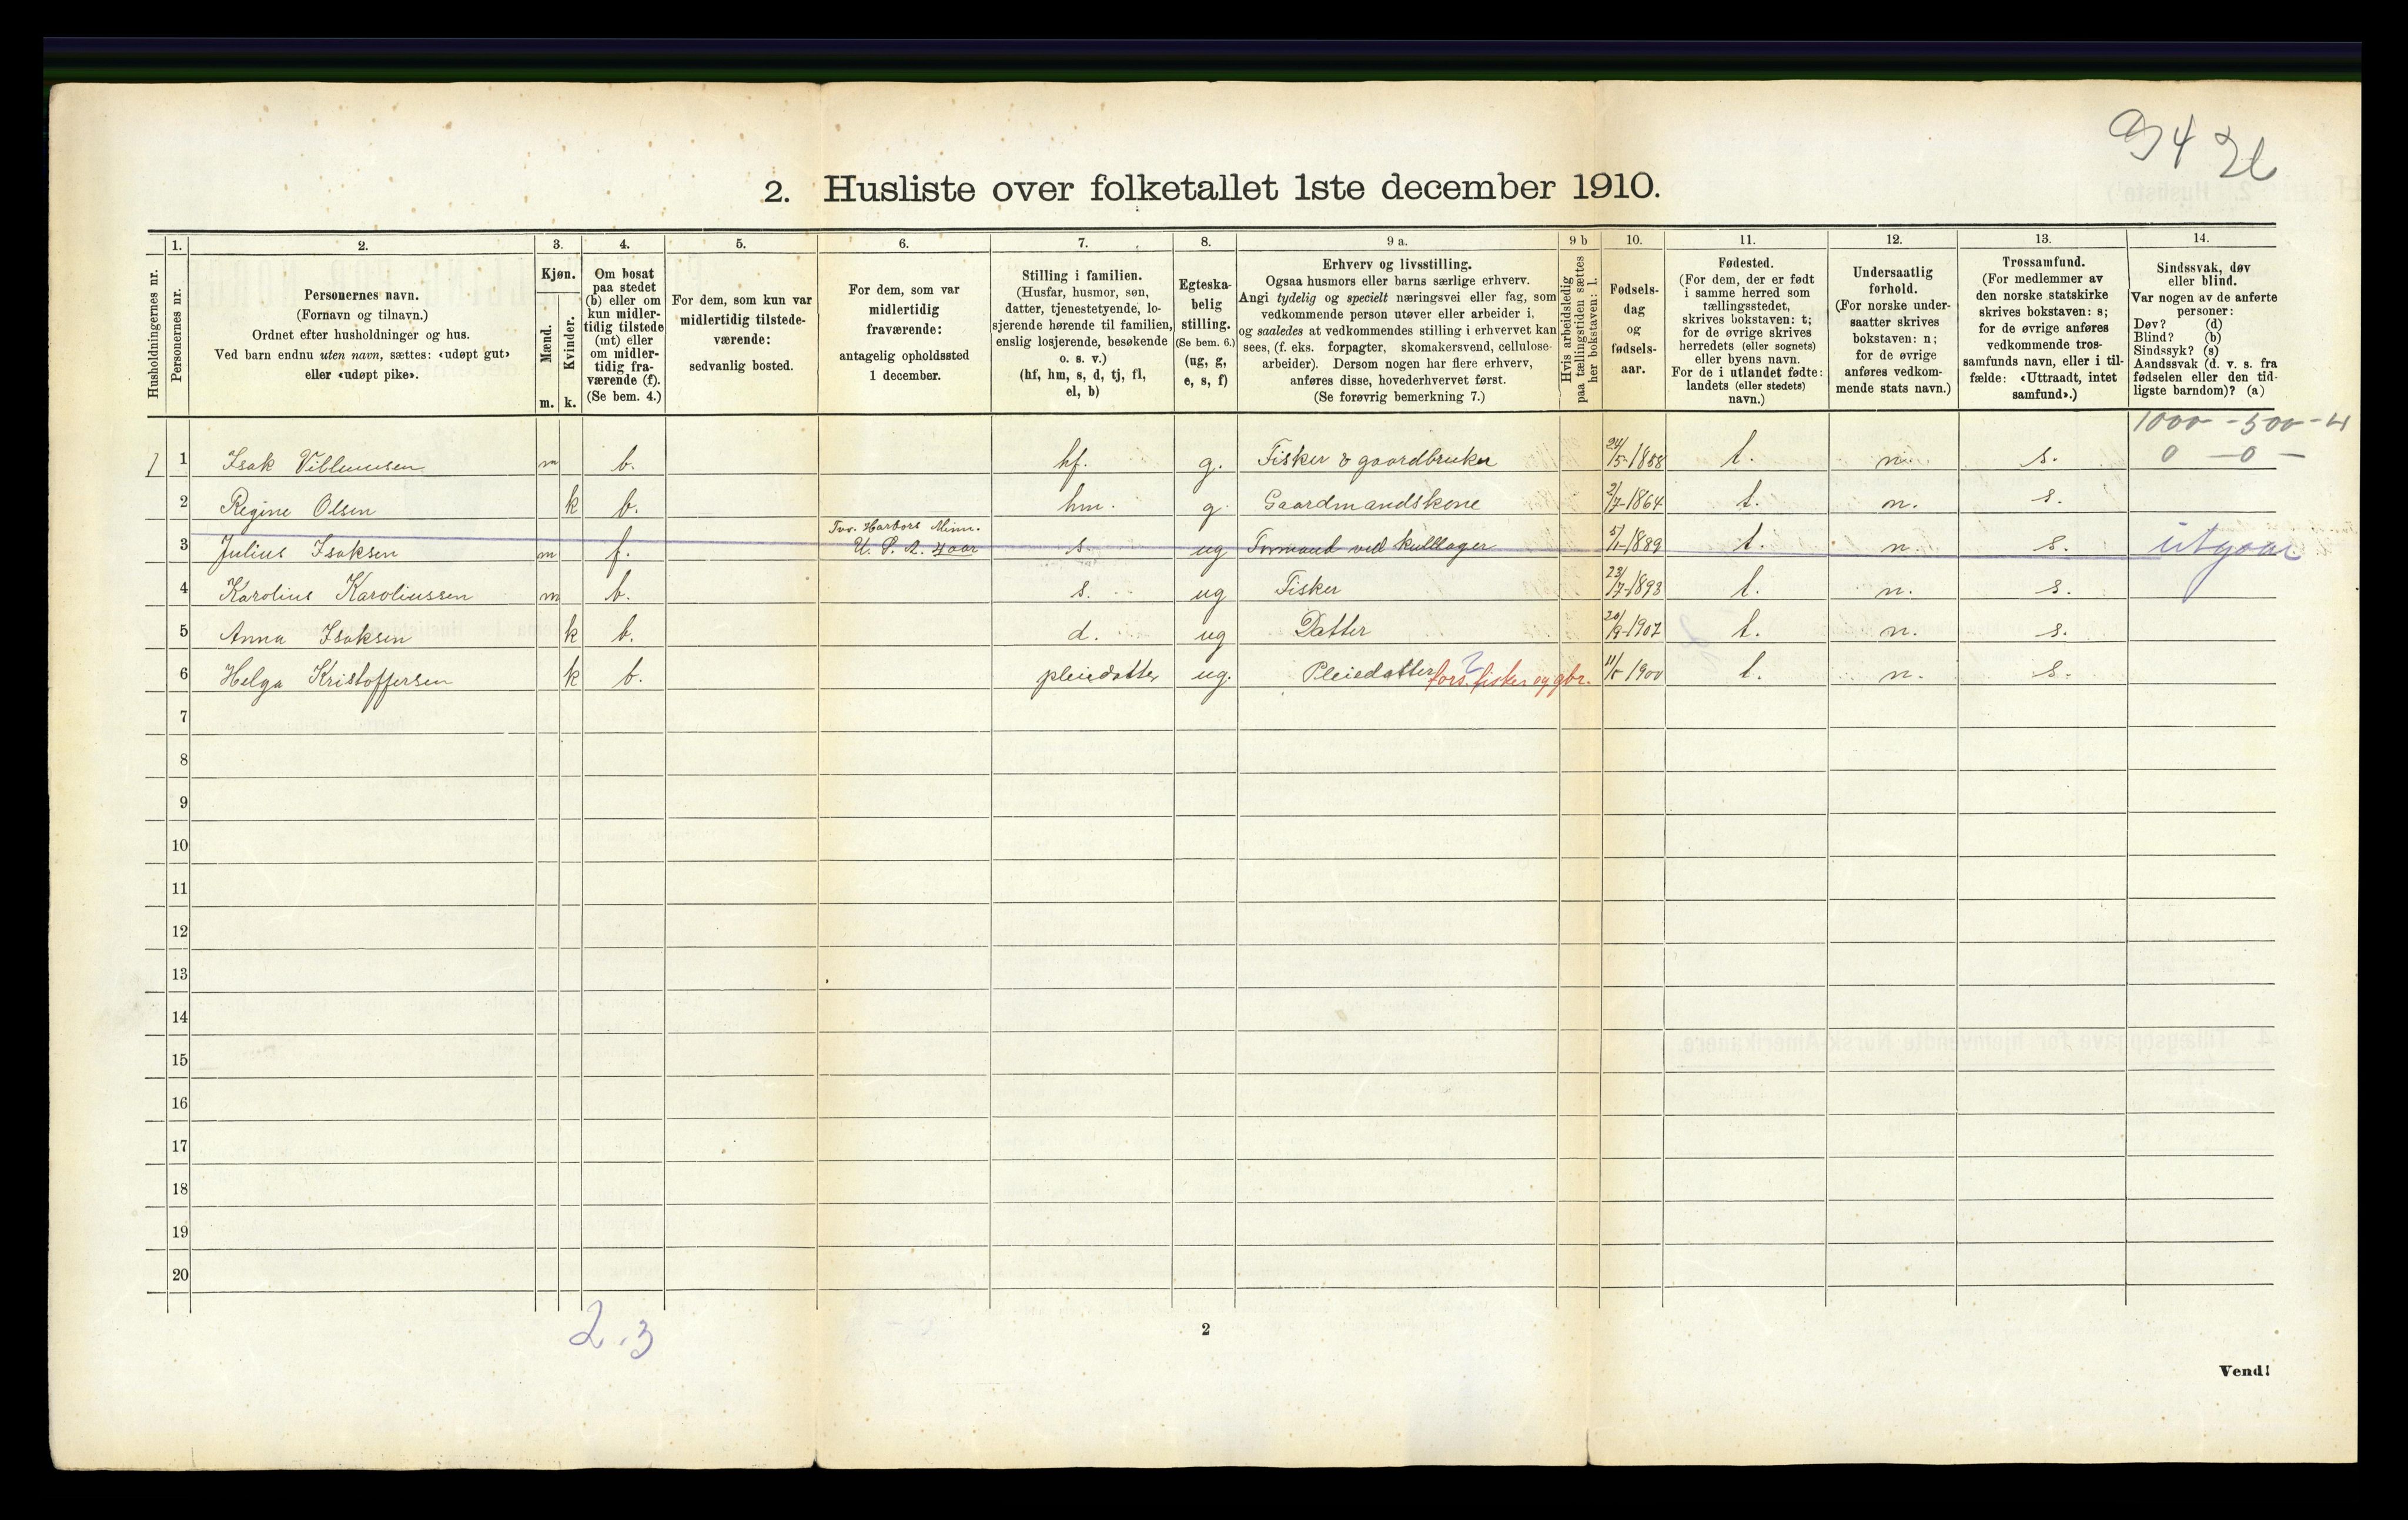 94 26
2. Husliste over folketallet 1ste december 1910.
Husholdningernes nr.
1.
Personernes nr.
2.
Personernes navn.
(Fornavn og tilnavn.)
Ordnet efter husholdninger og hus.
Ved barn endnu uten navn, sættes: «udøpt gut»
eller «udøpt pike».
3.
Kjøn.
Mænd.
Kvinder.
m. k.
4.
Om bosat
paa stedet
(b) eller om
kun midler-
tidig tilstede
(mt) eller
om midler-
tidig fra-
værende (f).
(Se bem. 4.)
5.
For dem, som kun var
midlertidig tilstede-
værende:
sedvanlig bosted.
6.
For dem, som var
midlertidig
fraværende:
antagelig opholdssted
1 december.
7.
Stilling i familien.
(Husfar, husmor, søn,
datter, tjenestetyende, lo-
sjerende hørende til familien,
enslig losjerende, besøkende
o. s. v.)
(hf, hm, s, d, tj, fl,
el, b)
8.
Egteska-
belig
stilling.
(Se bem. 6.)
(ug, g,
e, s, f)
9 a.
Erhverv og livsstilling.
Ogsaa husmors eller barns særlige erhverv.
Angi tydelig og specielt næringsvei eller fag, som
vedkommende person utøver eller arbeider i,
og saaledes at vedkommendes stilling i erhvervet kan
sees, (f. eks. forpagter, skomakersvend, cellulose-
arbeider). Dersom nogen har flere erhverv,
anføres disse, hovederhvervet først.
(Se forøvrig bemerkning 7.)
9 b
Hvis arbeidsledig
paa tællingstiden sættes
her bokstaven: l.
10.
Fødsels-
dag
og
fødsels-
aar.
11.
Fødested.
(For dem, der er født
i samme herred som
tællingsstedet,
skrives bokstaven: t;
for de øvrige skrives
herredets (eller sognets)
eller byens navn.
For de i utlandet fødte:
landets (eller stedets)
navn.)
12.
Undersaatlig
forhold.
(For norske under-
saatter skrives
bokstaven: n;
for de øvrige
anføres vedkom-
mende stats navn.)
13.
Trossamfund.
(For medlemmer av
den norske statskirke
skrives bokstaven: s;
for de øvrige anføres
vedkommende tros-
samfunds navn, eller i til-
fælde: «Uttraadt, intet
samfund».)
14.
Sindssvak, døv
eller blind.
Var nogen av de anførte
personer:
Døv? (d)
Blind? (b)
Sindssyk? (s)
Aandssvak (d. v. s. fra
fødselen eller den tid-
ligste barndom)? (a)
1000 - 500 - 4
0 - 0 -
1 1 Isak Villumsen m b. hf. g. Fisker & gaardbruker 24/5-1858 t. n. s.
2 Regine Olsen k b. hm. g Gaardmandskone 2/7-1864 t. n. s.
3 Julius Isaksen m f. Tvo. Harbors Minn. U. S. A. 4 aar s. ug Formand ved kullager 5/11-1889 t. n. s. utgaar
4 Karolius Karoliussen m b. s. ug Fisker 23/7-1893 t. n. s.
5 Anna Isaksen k b. d. ug Datter 20/9-1907 t. n. s.
6 Helga Kristoffersen k b. pleiedatter ug. Pleiedatter ? fors. fisker og gbr. 11/5 1900 t. n. s.
7
8
9
10
11
12
13
14
15
16
17
18
19
20
2.3
2
Vend!